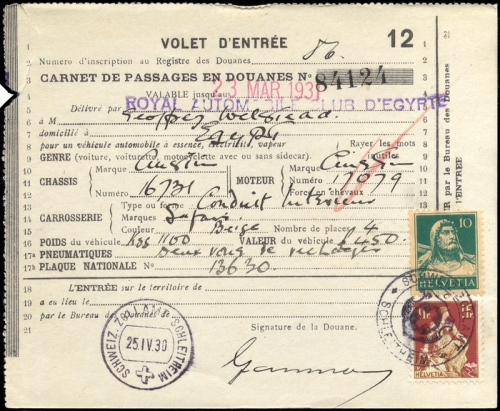 VOLET D'ENTRÉE 12
Numéro d'inscription au Registre des Douanes : 86.
CARNET DE PASSAGES EN DOUANES No 84124
VALABLE jusqu'au 23 MAR. 193
Délivré par ROYAL AUTOMOBILE CLUB D'EGYPTE
à M Geoffrey
domicilié à Egypt
pour un véhicule automobile à essence, électricité, vapeur Rayer les mots inutiles
GENRE (voiture, voiturette, motocyclette avec ou sans sidecar).
CHASSIS Marque Austin Numéro 16731
MOTEUR Marque Austin Numéro 17079
Force en chevaux
CARROSSERIE Type ou forme Conduit Interieur
Marques
Couleur Beige Nombre de places 4
POIDS du véhicule 1100 VALEUR du véhicule 450
PNEUMATIQUES Deux de rechanges
PLAQUE NATIONALE No 13630
L'ENTRÉE sur le territoire de
a eu lieu le
par le Bureau des Douanes de
Signature de la Douane.
SCHWEIZ. ZOLLAMT SCHLEITHEIM
25.IV.30
10
HELVETIA
HELVETIA
par le Bureau des Douanes
L'ENTRÉE